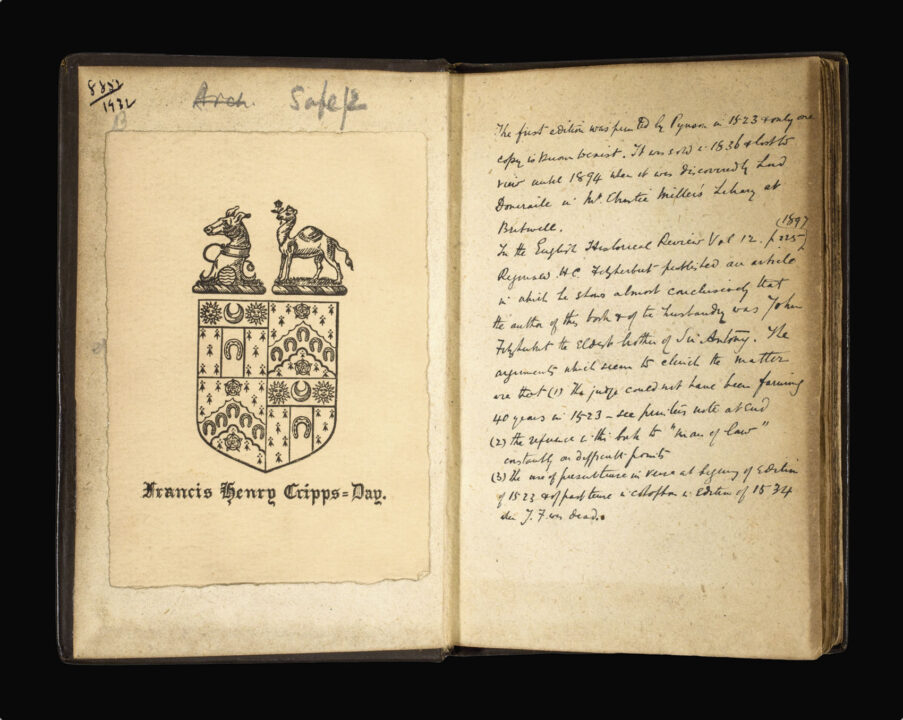 8832
1932
B
Arch. Safe/2
Francis Henry Cripps=Day.
The first edition was printed by Pynson in 1523 & only one
copy is known to exist. It was sold in 1836 & lost to
view until 1894 when it was discovered by Lord
Doneraile in Mr Christie Miller's Library at
Britwell.
In the English Historical Review Vol 12. p 225 (1897)
Reginald H.C. Fitzherbert published an article
in which he shows almost conclusively that
the author of this book & of the husbandry was John
Fitzherbert the Eldest brother of Sir Antony. The
arguments which seem to clinch the matter
are that (1) The judge could not have been farming
40 years in 1523 – see printers note at End
(2) the reference in this book to "man of law"
constantly on difficult points
(3) the use of present tense in verse at beginning of Edition
of 1523 & of past tense in colophon in Edition of 1534
when J. F. was dead.